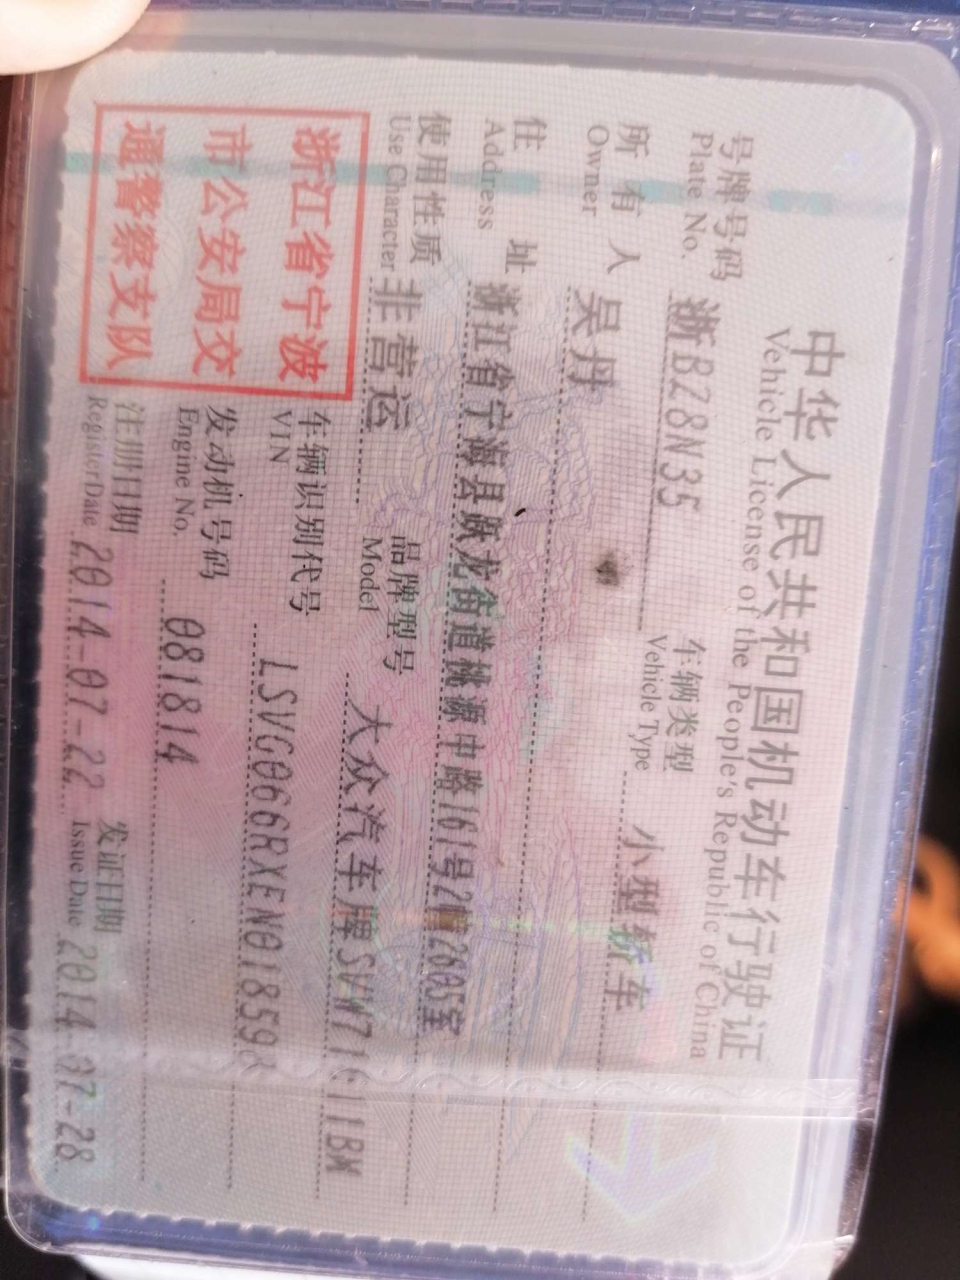 中华人民共和国机动车行驶证
Vehicle License of the People's Republic of China
号牌号码 浙BZ8N35 车辆类型 小型轿车
Plate No. Vehicle Type
所有人 吴丹
Owner
住址 浙江省宁海县跃龙街道桃源中路161号2幢2605室
Address
使用性质 非营运 品牌型号 大众汽车牌SVW71611BM
Use Character Model
浙江省宁波
市公安局交
通警察支队
车辆识别代号 LSVCG066RXEN018598
VIN
发动机号码 081814
Engine No.
注册日期 2014-07-22 发证日期 2014-07-28
Register Date Issue Date